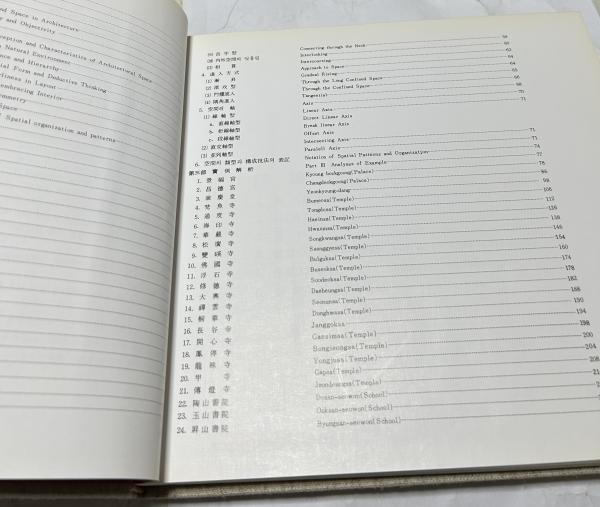 and Space in Architecture
y and Objectivity
eption and Characteristics of Architectural Space
Natural Environment
nce and Hierarchy
ial Form and Deductive Thinking
diness in Layout
mbracing Interior
ymmetry
Space
Spatial organization and patterns
Connecting through the Neck 59
Interlocking 60
Intercourcing 62
4. 進入方式 Approach to Space 64
(1) 漸 昇 Gradual Rising 64
(2) 深攻型 Through the Long Confined Space 65
(3) 門樓進入 Through the Confined Space 66
(4) 隅角進入 Tangential 70
5. 空間의 軸 Axis 71
(1) 線軸型 Linear Axis
a. 直線軸型 Direct Linear Axis
b. 折線軸型 Break linear Axis
c. 段線軸型 Offset Axis
(2) 直交軸型 Intersecting Axis 71
(3) 並列軸型 Parallell Axis 74
6. 空間의 類型과 構成技法의 表記 Notation of Spatial Patterns and Organization 77
第三部 實例解析 Part III Analyses of Example 72
1. 景福宮 Kyoung bookgoong(Palace) 78
2. 昌德宮 Changdeokgoong(Palace) 86
3. 演慶堂 Yeonkyoung-dang 98
4. 梵魚寺 Bumeosa(Temple) 106
5. 通度寺 Tongdosa(Temple) 112
6. 海印寺 Haeinsa(Temple) 126
7. 華嚴寺 Hwaumsa(Temple) 138
8. 松廣寺 Songkwangsa(Temple) 146
9. 雙磎寺 Ssanggyesa(Temple) 154
10. 佛國寺 Bulguksa(Temple) 160
11. 浮石寺 Buseoksa(Temple) 174
12. 修德寺 Soodeoksa(Temple) 178
13. 大興寺 Daeheungsa(Temple) 182
14. 禪雲寺 Seonunsa(Temple) 188
15. 桐華寺 Donghwasa(Temple) 190
16. 長谷寺 Janggoksa 194
17. 開心寺 Gaesimsa(Temple) 198
18. 鳳停寺 Bongjeongsa(Temple) 200
19. 龍珠寺 Yongjusa(Temple) 204
20. 甲寺 Gapsa(Temple) 208
21. 傳燈寺 Jeondeungsa(Temple)
22. 陶山書院 Dosan-seowon(School)
23. 玉山書院 Ooksan-seowon(School)
24. 屛山書院 Byungsan-seowon(School)